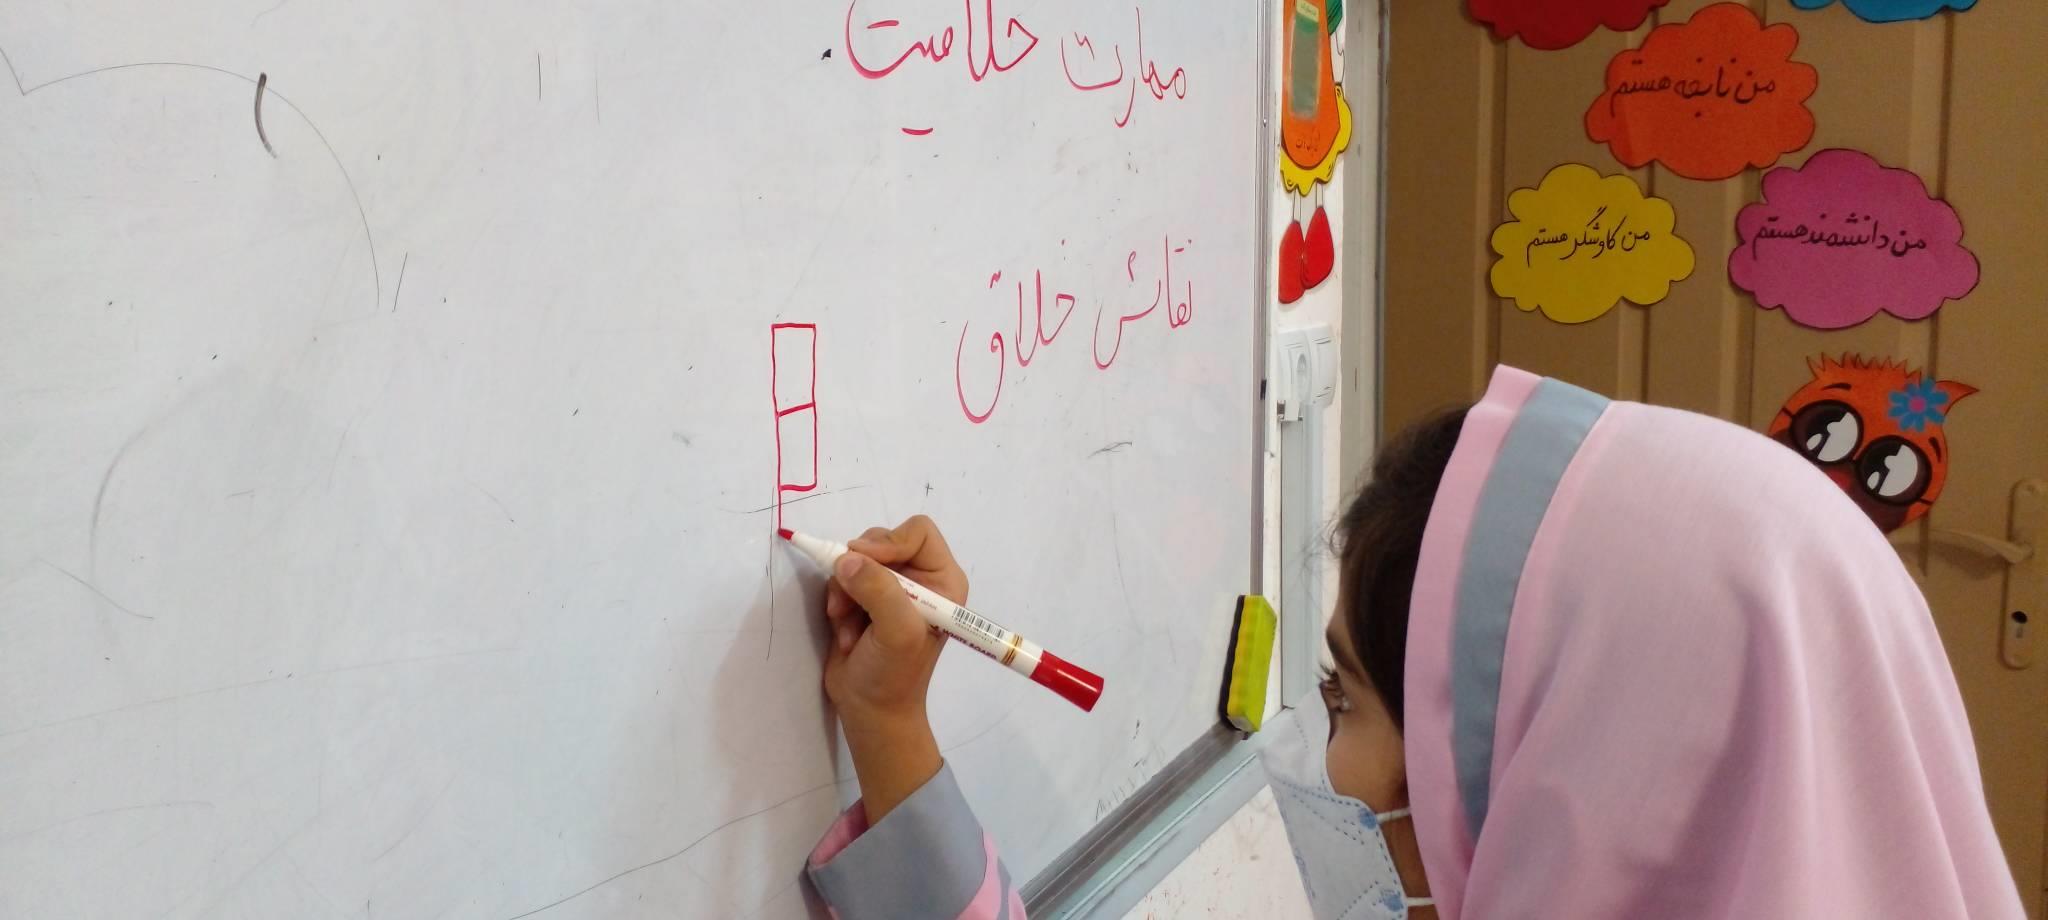 مهارت خلاقیت
نقاش خلاق
من نابغه هستم
من کاوشگر هستم
من دانشمند هستم
WHITE BOARD